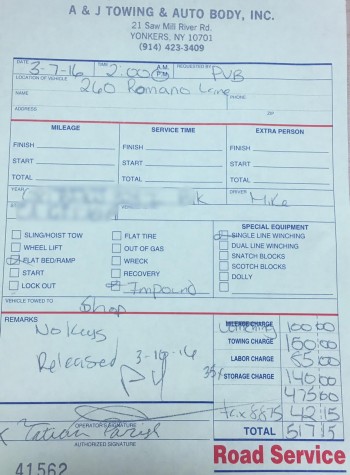 A & J TOWING & AUTO BODY, INC.
21 Saw Mill River Rd.
YONKERS, NY 10701
(914) 423-3409
DATE 3-7-16 TIME 2:00 A.M. P.M. REQUESTED BY PVB
LOCATION OF VEHICLE 260 Romano Lane
NAME PHONE
ADDRESS ZIP
MILEAGE SERVICE TIME EXTRA PERSON
FINISH FINISH FINISH
START START START
TOTAL TOTAL TOTAL
YEAR DRIVER Mike
SPECIAL EQUIPMENT
SLING/HOIST TOW FLAT TIRE SINGLE LINE WINCHING
WHEEL LIFT OUT OF GAS DUAL LINE WINCHING
FLAT BED/RAMP WRECK SNATCH BLOCKS
START RECOVERY SCOTCH BLOCKS
LOCK OUT Impound DOLLY
VEHICLE TOWED TO Shop
REMARKS
No Keys
Released 3-10-16
MILEAGE CHARGE 100 00
TOWING CHARGE 150 00
LABOR CHARGE 85 00
35/ STORAGE CHARGE 140 00
475 00
Tax 8.875 42 15
TOTAL 517 15
OPERATOR'S SIGNATURE
AUTHORIZED SIGNATURE
41562
Road Service